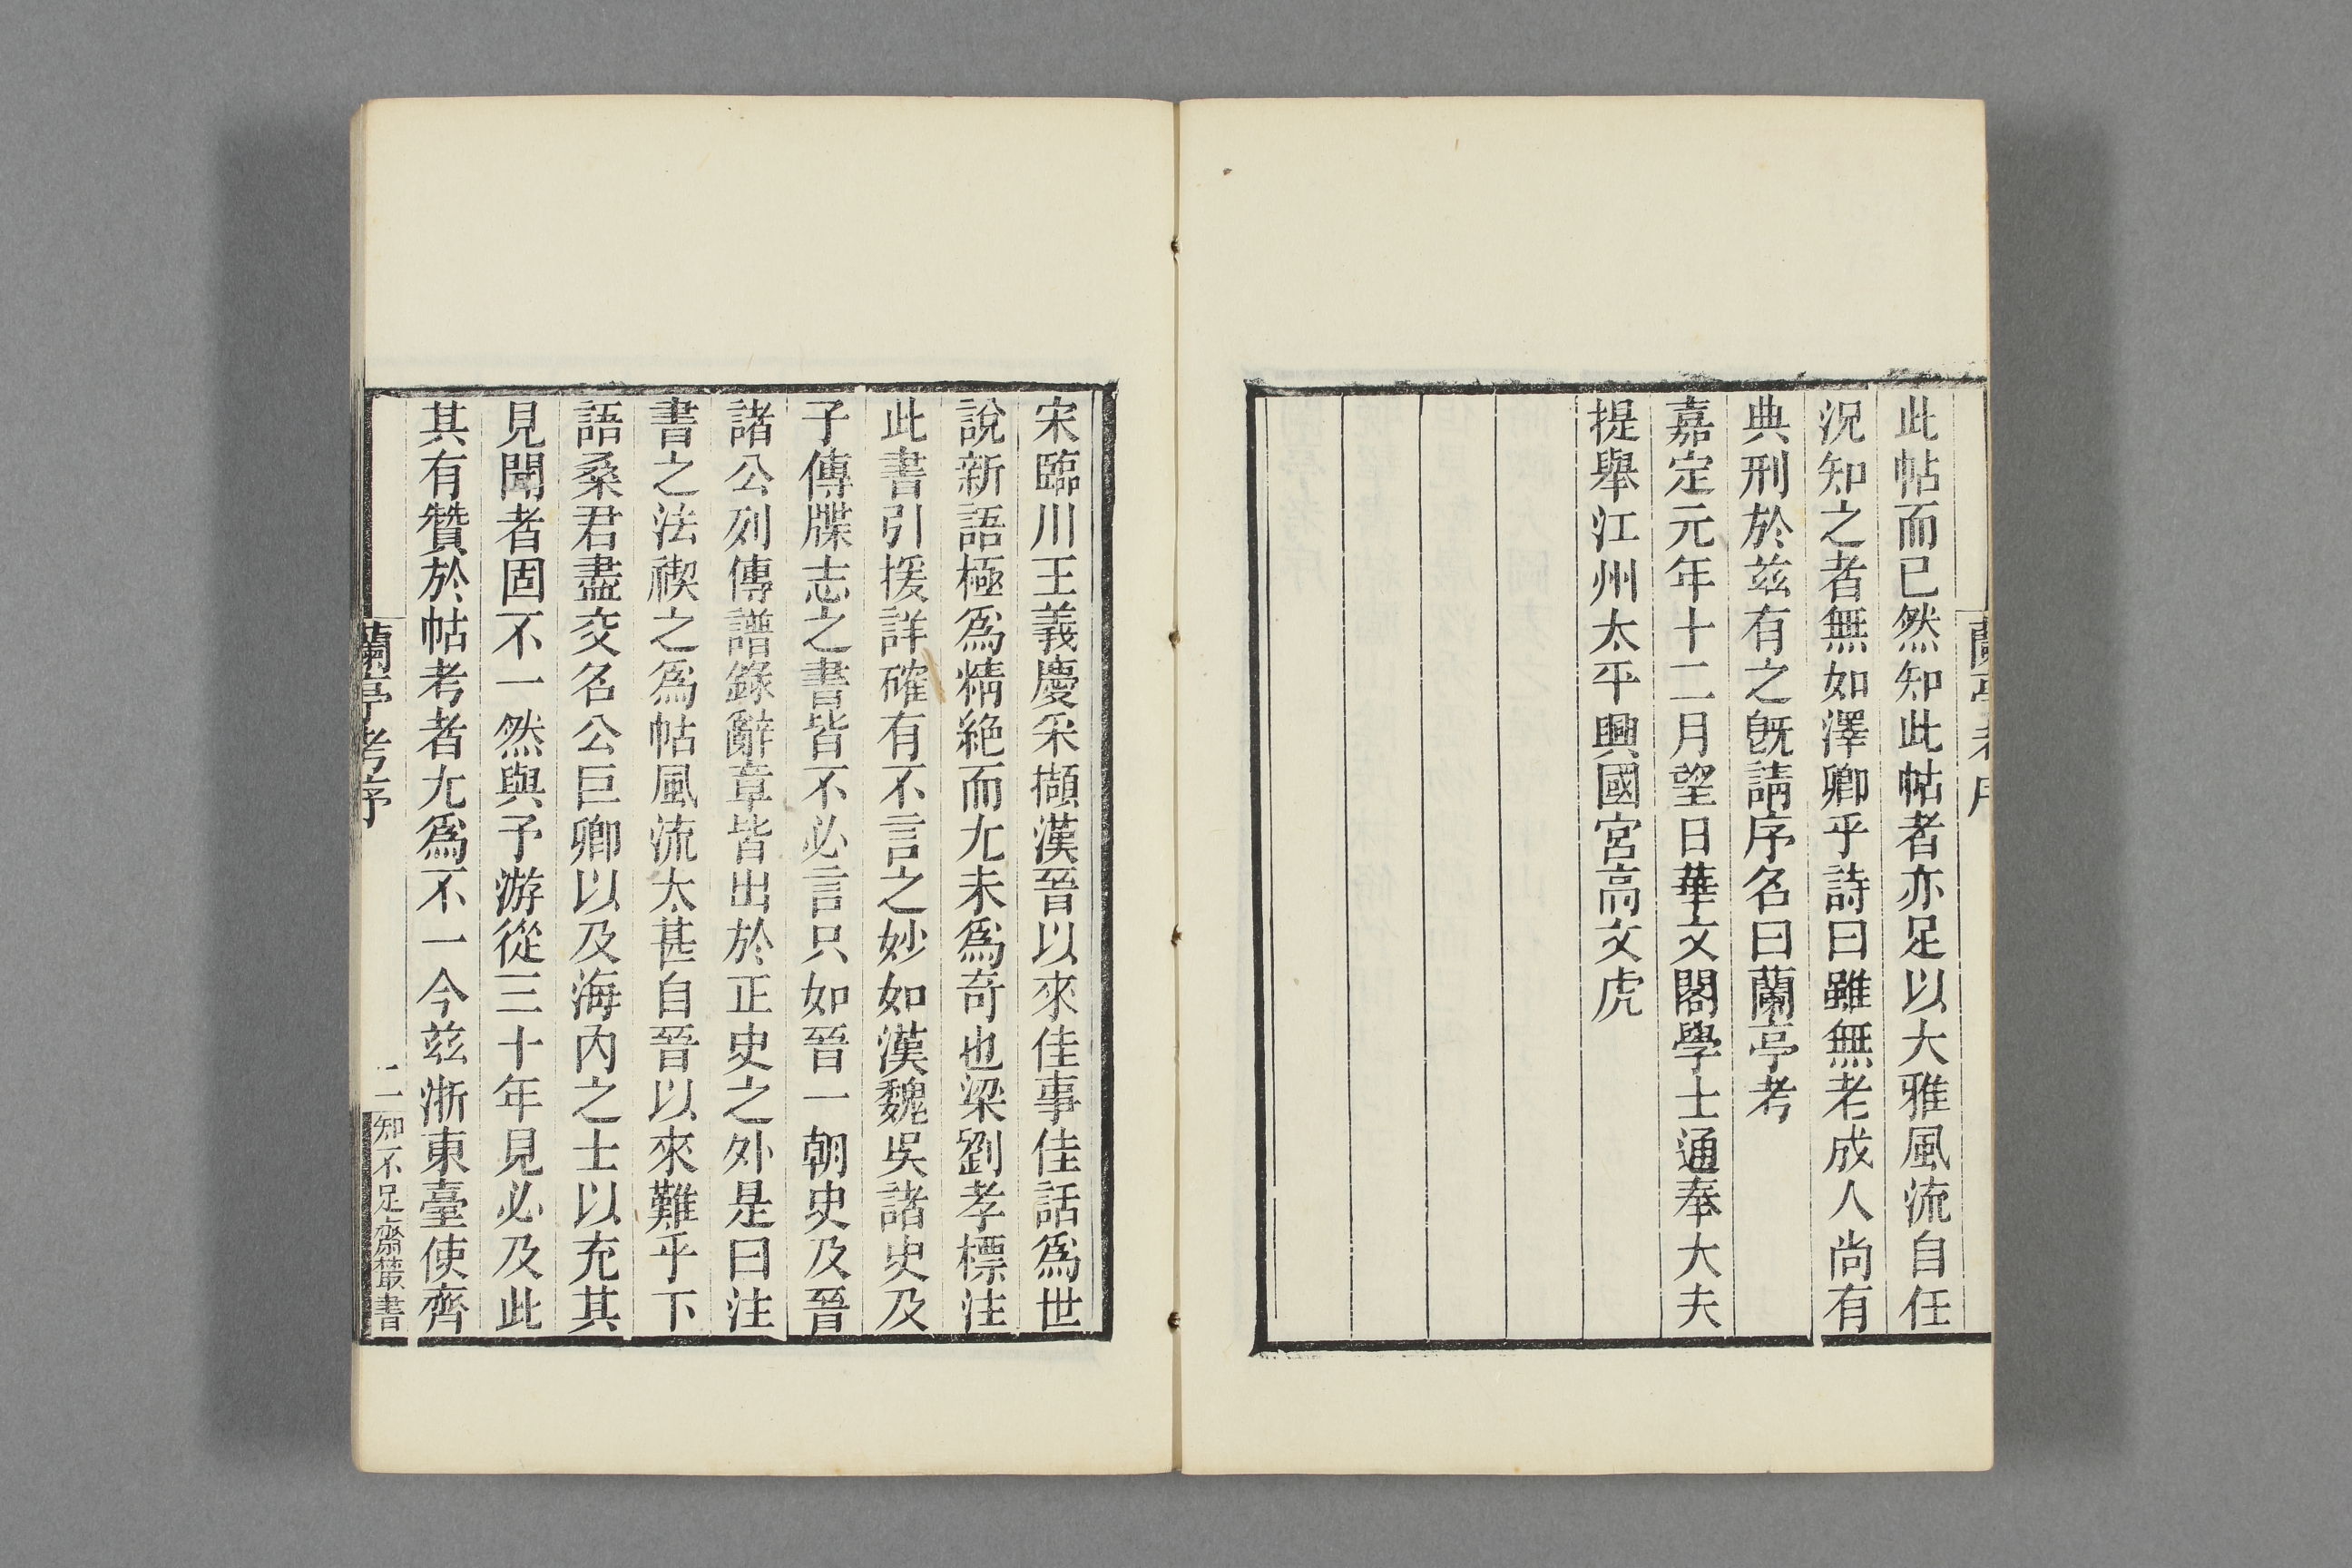 此帖而已然知此帖者亦足以大雅風流自任
況知之者無如澤卿乎詩曰雖無老成人尚有
典刑於兹有之旣請序名曰蘭亭考
嘉定元年十二月望日華文閣學士通奉大夫
提舉江州太平興國宮高文虎
宋臨川王義慶采擷漢晉以來佳事佳話爲世
說新語極爲精絶而尤未爲奇也梁劉孝標注
此書引援詳確有不言之妙如漢魏吳諸史及
子傳牒志之書皆不必言只如晉一朝史及晉
諸公列傳譜錄辭章皆出於正史之外是曰注
書之法禊之爲帖風流太甚自晉以來難乎下
語桑君盡交名公巨卿以及海內之士以充其
見聞者固不一然與予游從三十年見必及此
其有贊於帖考者尤爲不一今兹浙東臺使齊
蘭亭考序
二
知不足齋叢書